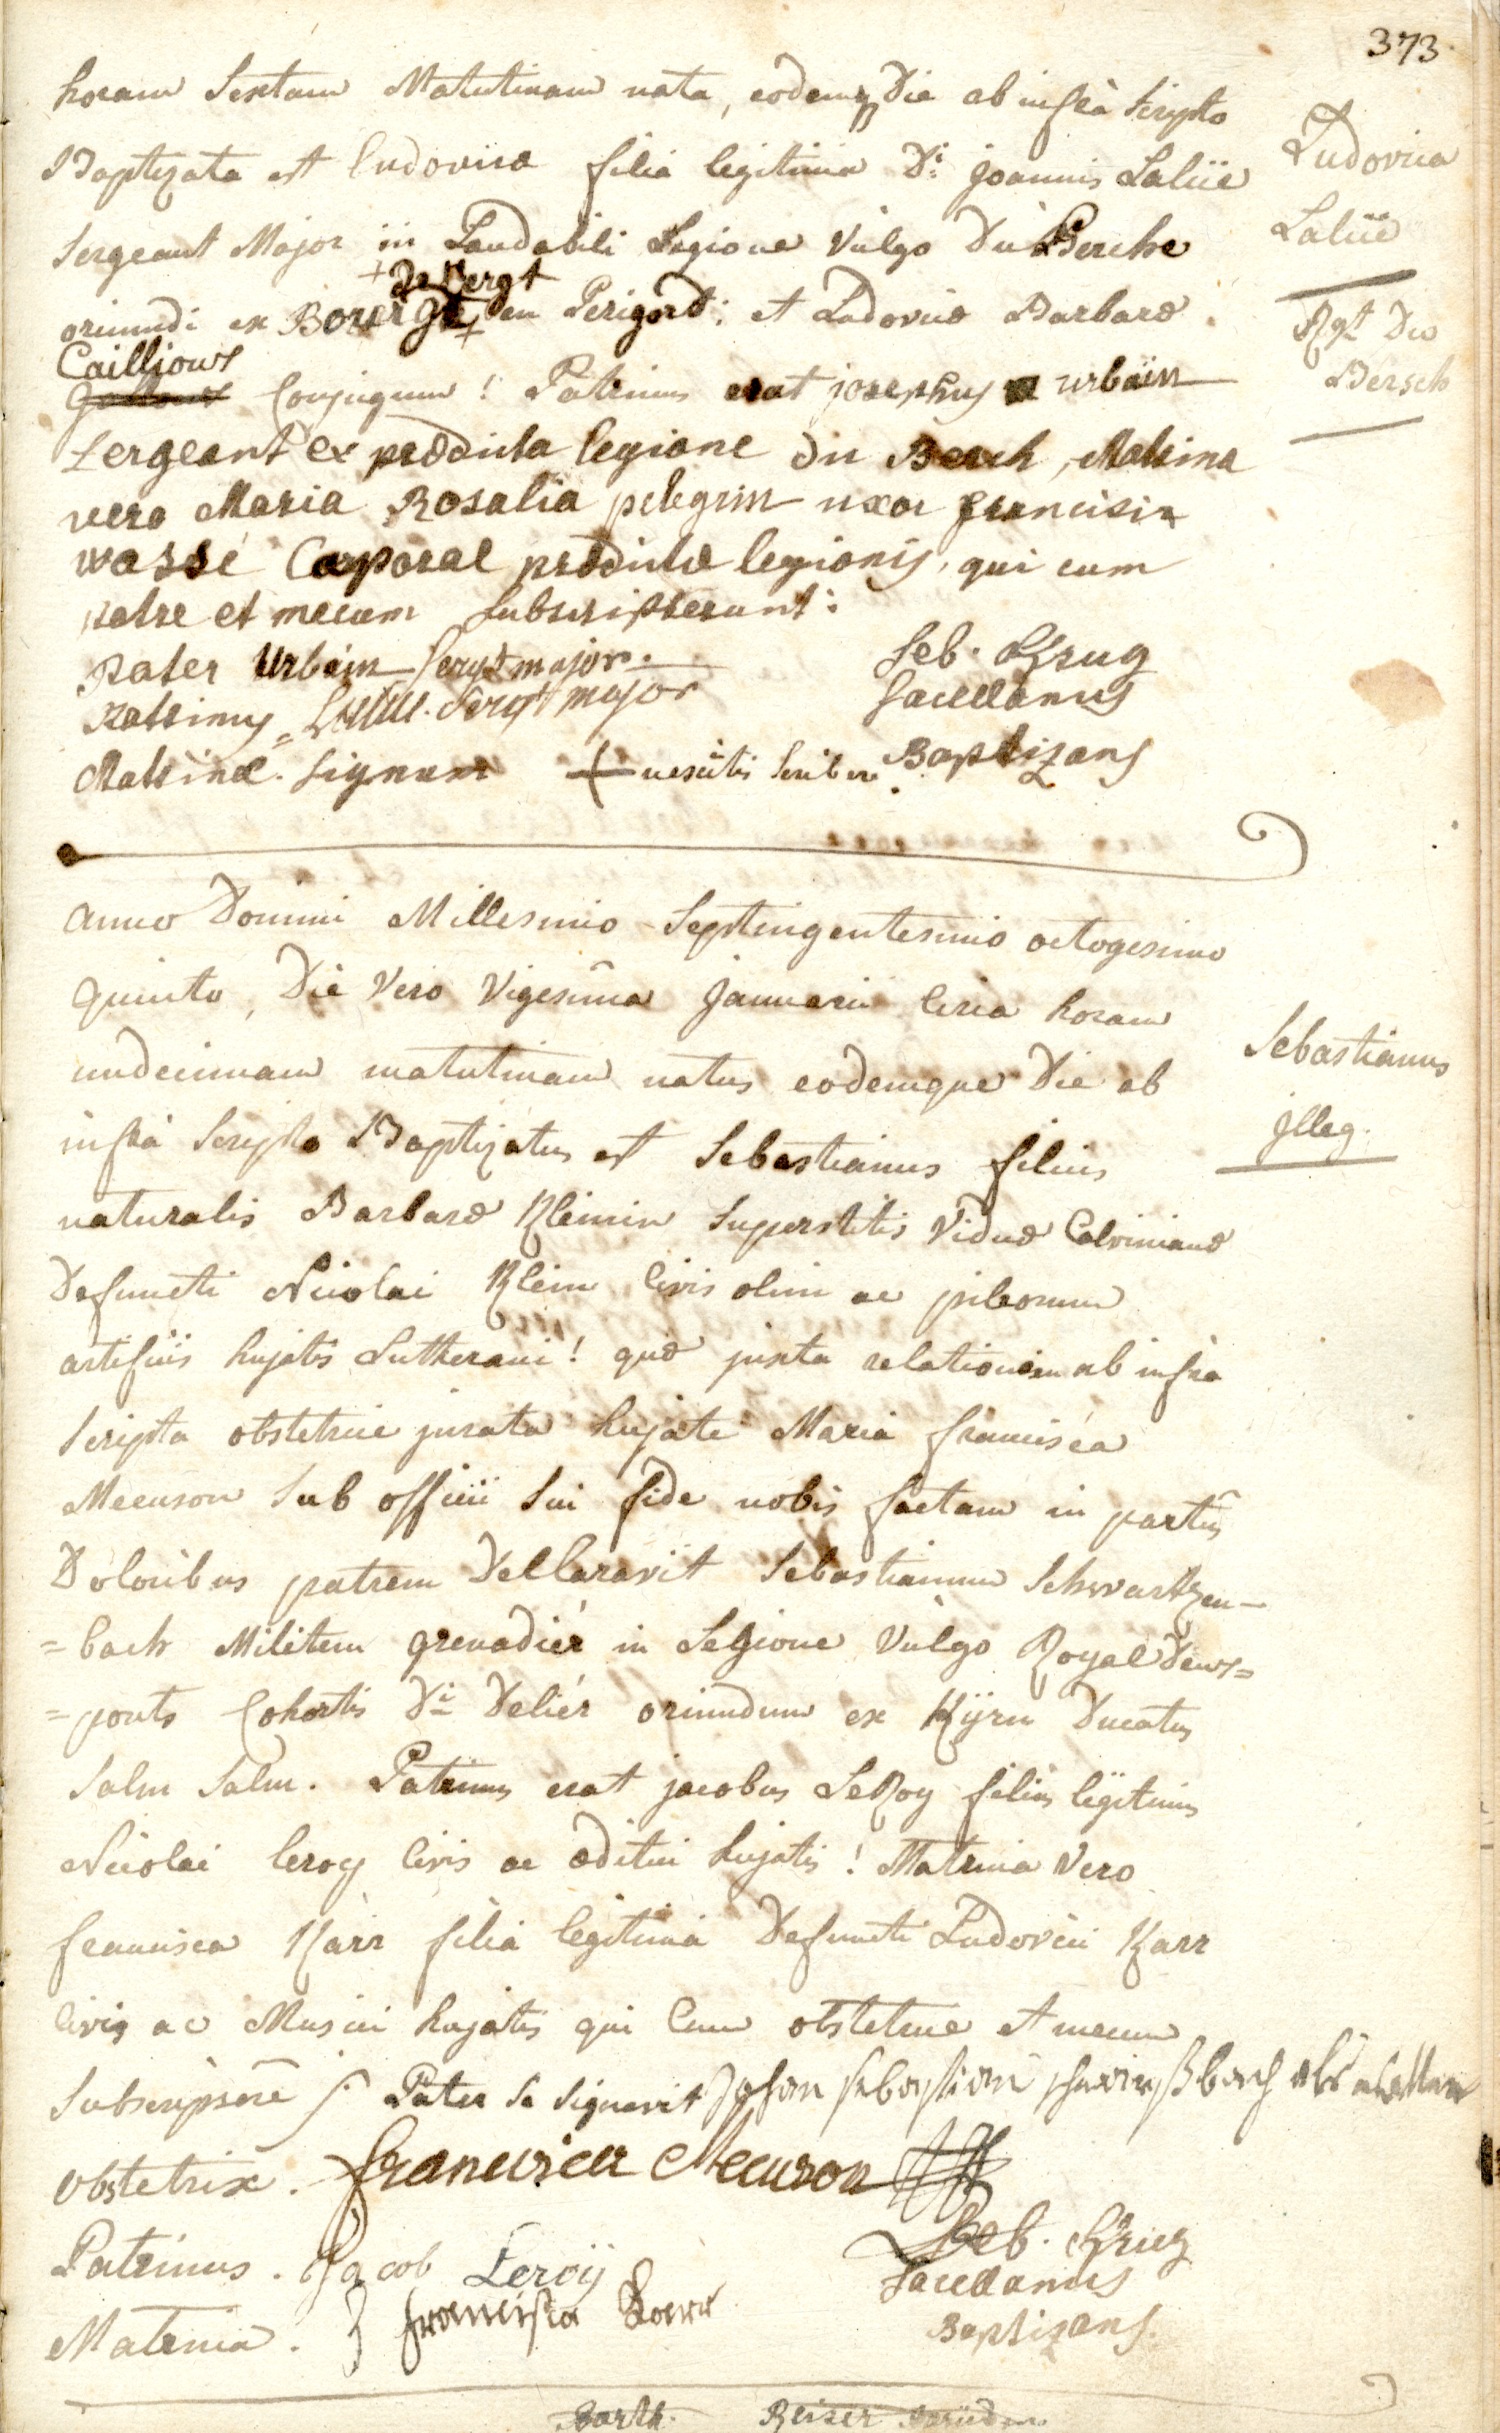 373.
horam Sextam Matutinam nata, eodemq Die ab infrà Scripto
Baptizata est Ludovica filia legitima Di: Joannis Lalüe
Ludovica
Lalüe
Sergeant Major in Laudabili Legione Vulgo Du Perche
+ De Vergt
oriundi ex en Perigord: et Ludovicæ Barbaræ
Rgt Du
Persch
Cailljous
Conjugum! Patrinus erat josephus urbain
Sergeant ex prædicta legione du Perch, Matrina
vero Maria Rosalia pelegrin uxor francisi
wassé Corporal prædictæ legionis, qui cum
patre et mecum subscripserunt:
Pater Urbain Sergt major.
Patrinus Lalüe. Sergt major
Matrinæ. Signum + nescitis Scribere.
Seb. Krug
Sacellanus
Baptizans
Anno Domini Millesimo Septingentesimo octogesimo
Quinto, Die Vero Vigesima Januarii Circa horam
undecimam matutinam natus eodemque Die ab
infrà Scripto Baptizatus est Sebastianus filius
Sebastianus
jlleg.
naturalis Barbaræ Kleinin Superstitis Viduæ Calvinianæ
Defuncti Nicolai Klein Civis olim ac pileorum
artificis hujatis Lutherani! quæ juxta relationem ab infra
Scripta obstetrice jurata hujate Maria francisca
Mecuson Sub officii Sui fide nobis factam in partus
Doloribus patrem Dellaravit Sebastianum Schwartzen-
=bach Militem grenadiér in Legione Vulgo Royal Deux=
=ponts Cohortis Di Deliér oriundum ex Kÿrn Ducatus
Salm Salm. Patrinus erat jacobus LeRoy filius legitimus
Nicolai leroy Civis ac æditui hujatis! Matrina Vero
francisca Karr filia legitima Defuncti Ludovici Karr
Civis ac Musici hujatis qui Cum obstetrice et mecum
Subscripsere Pater Se Signavit Johan sebastian
Obstetrix. francisca Mecuson
Patrinus. Jacob Leroÿ
Matrina. francisca Karr
Seb. Krug
Sacellanus
Baptizans.